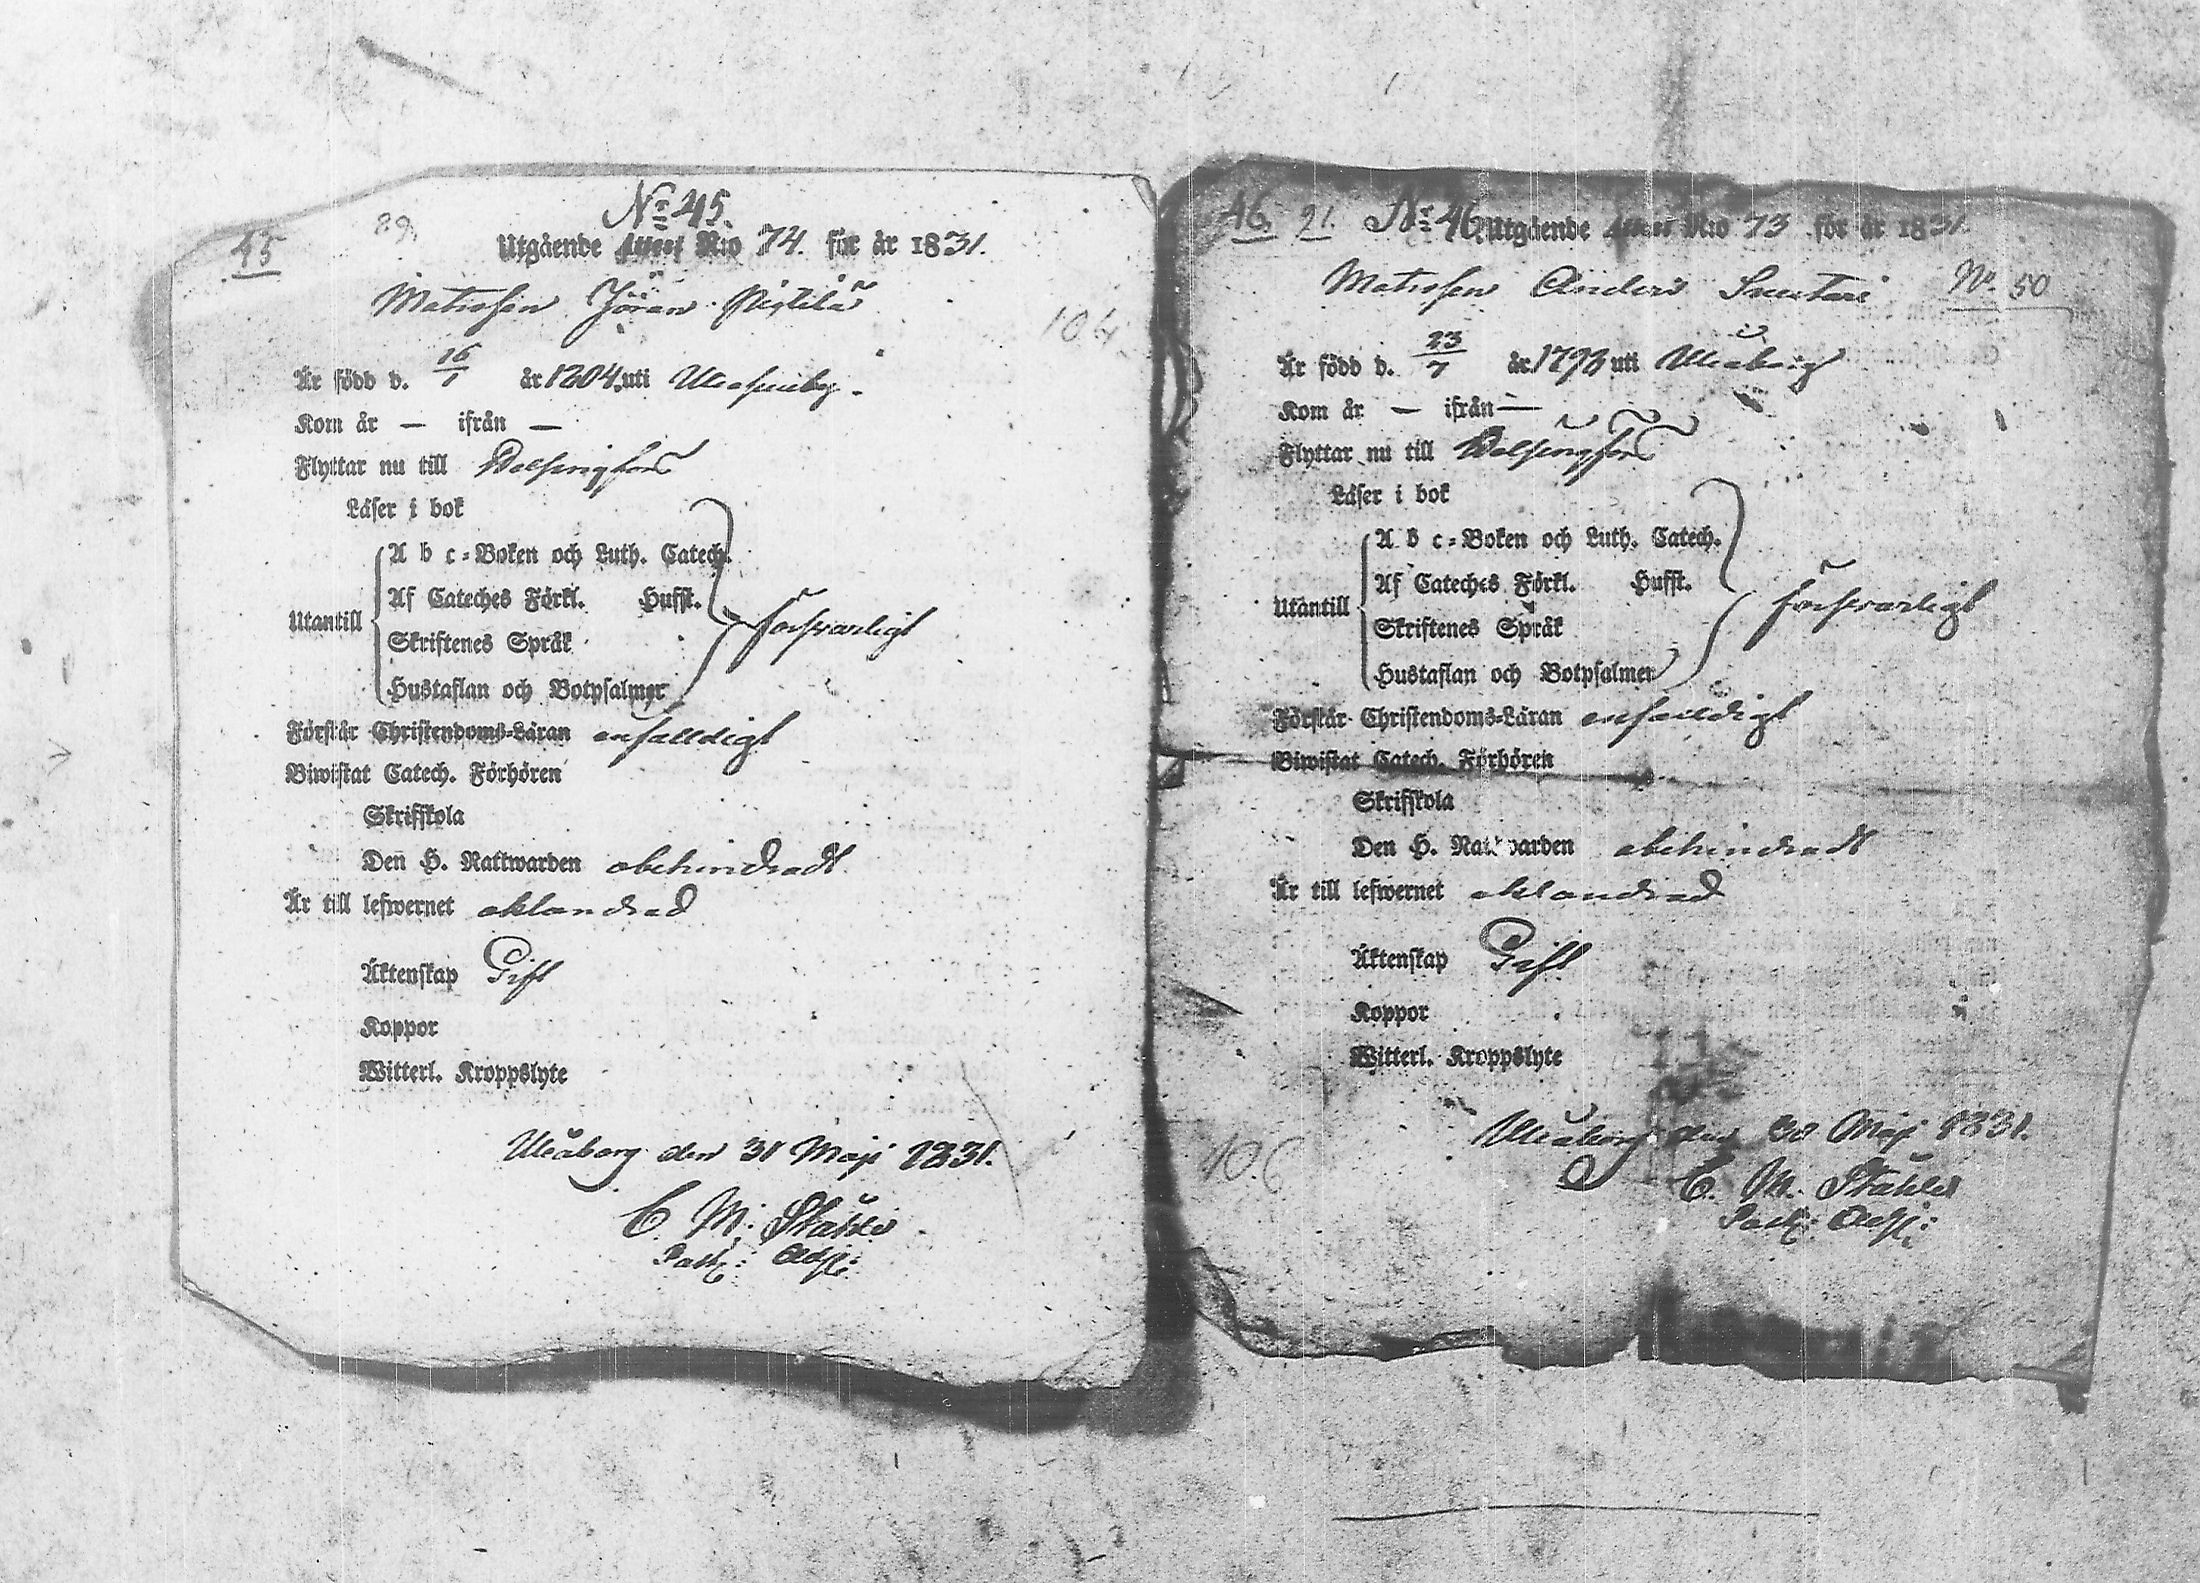 45
89.
N:r 45.
Utgående Attest N:o 74. för år 1831.
Matrosen Jöran
104.
Är född d. 16/1 år 1804 uti Uleåborg.
Kom år — ifrån —
Flyttar nu till Helsingfors
Läser i bok
A b c-Boken och Luth. Catech.
Af Cateches Förkl. Husft.
Utantill
försvarligt
Skriftenes Språk
Hustaflan och Botpsalmer
Förstår Christendoms-Läran enfalldigt
Biwistat Catech. Förhören
Skriftskola
Den H. Nattwarden obehindradt
Är till lefwernet oklandrad
Äktenskap Gift
Koppor
Witterl. Kroppslyte
Uleåborg den 31 Maji 1831.
C. M. Ståhle
Past: Adj:
46. 91. N:r 46. Utgående Attest N:o 73 för år 1831.
Matrosen Anders Suutari
N:o 50
Är född d. 23/7 år 1793 uti Uleåborg
Kom år — ifrån —
Flyttar nu till Helsingfors
Läser i bok
A b c-Boken och Luth. Catech.
Af Cateches Förkl. Husft.
Utantill
försvarligt
Skriftenes Språk
Hustaflan och Botpsalmer
Förstår Christendoms-Läran enfalldigt
Biwistat Catech. Förhören
Skriftskola
Den H. Nattwarden obehindradt
Är till lefwernet oklandrad
Äktenskap Gift
Koppor
Witterl. Kroppslyte
Uleåborg den 30 Maji 1831.
106
C. M. Ståhle
Past: Adj: